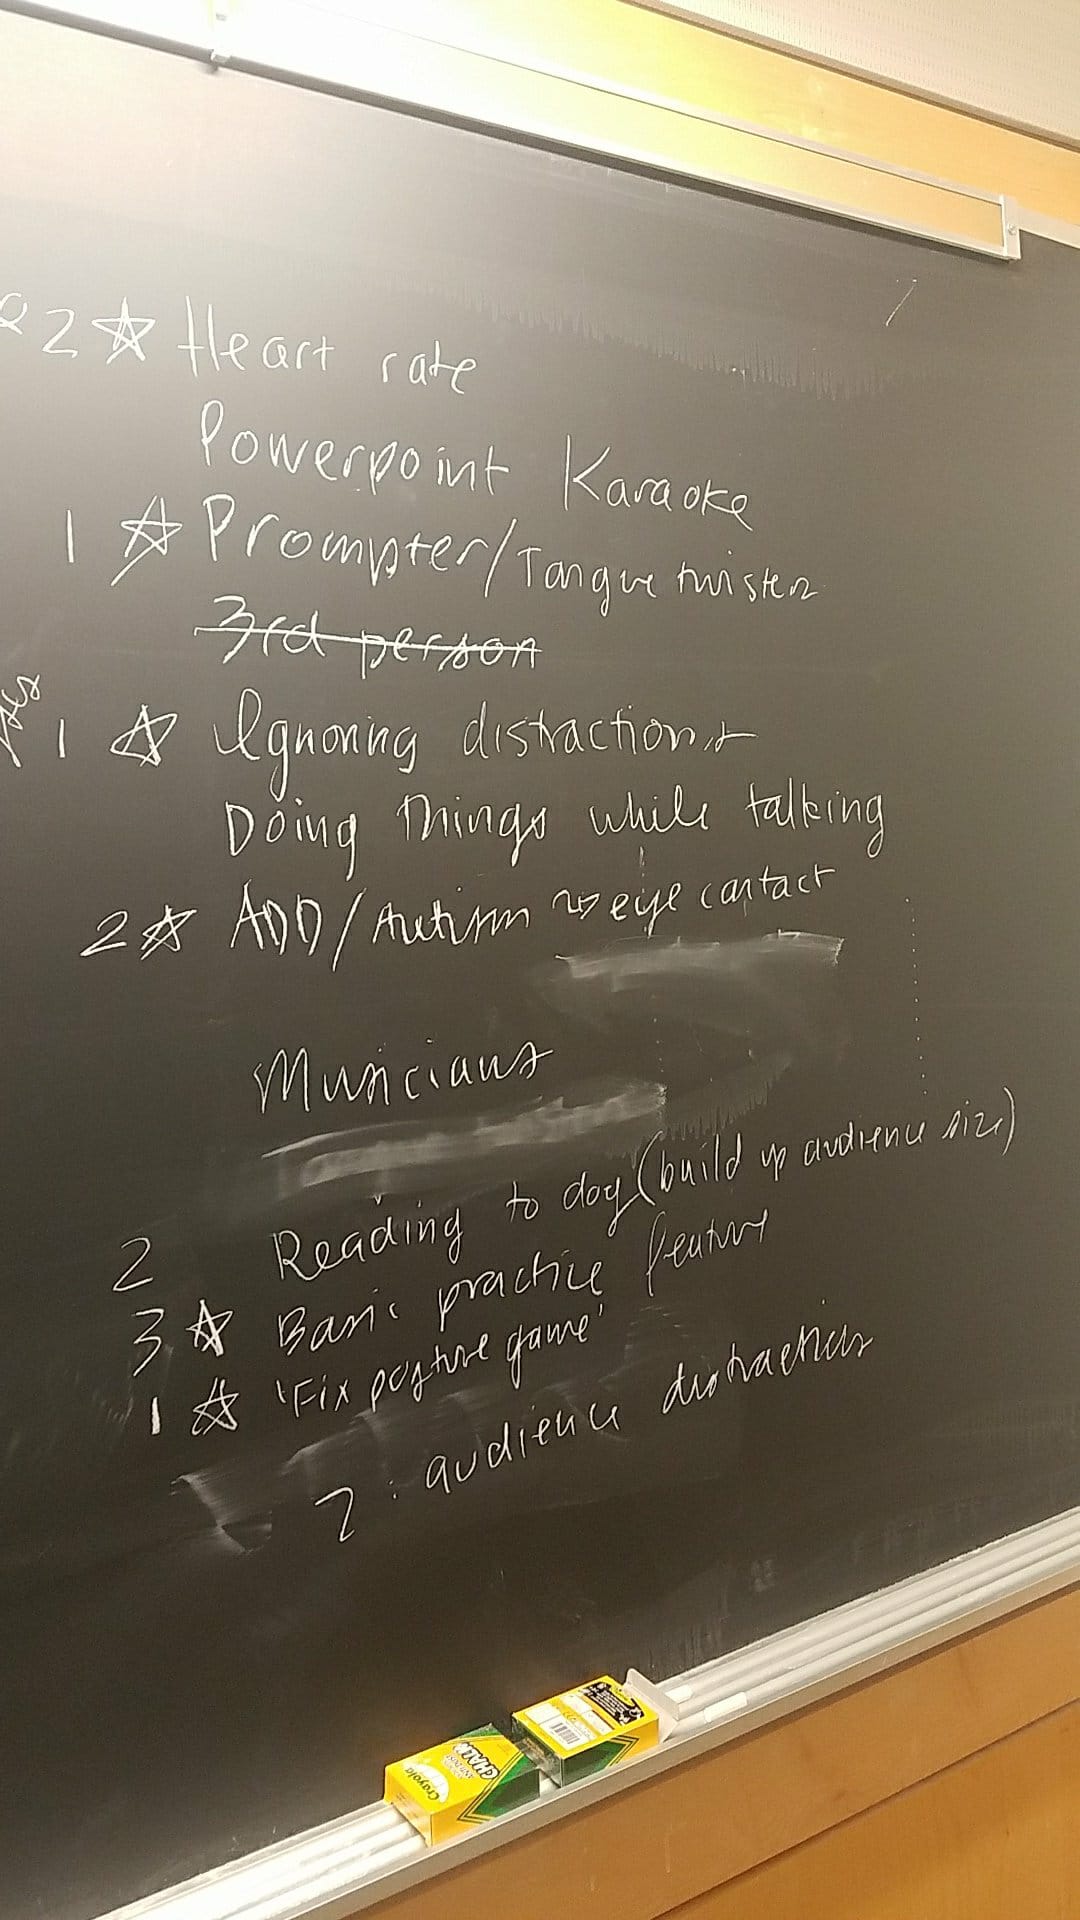 2 ☆ Heart rate
Powerpoint Karaoke
1 ☆ Prompter/Tongue twister
3rd person
1 ☆ Ignoring distractions
Doing things while talking
2 ☆ ADD/Autism eye contact
Musicians
2 Reading to dog (build up audience size)
3 ☆ Basic practice feature
1 ☆ 'Fix posture game'
2 : audience distraction
Crayola
CHALK